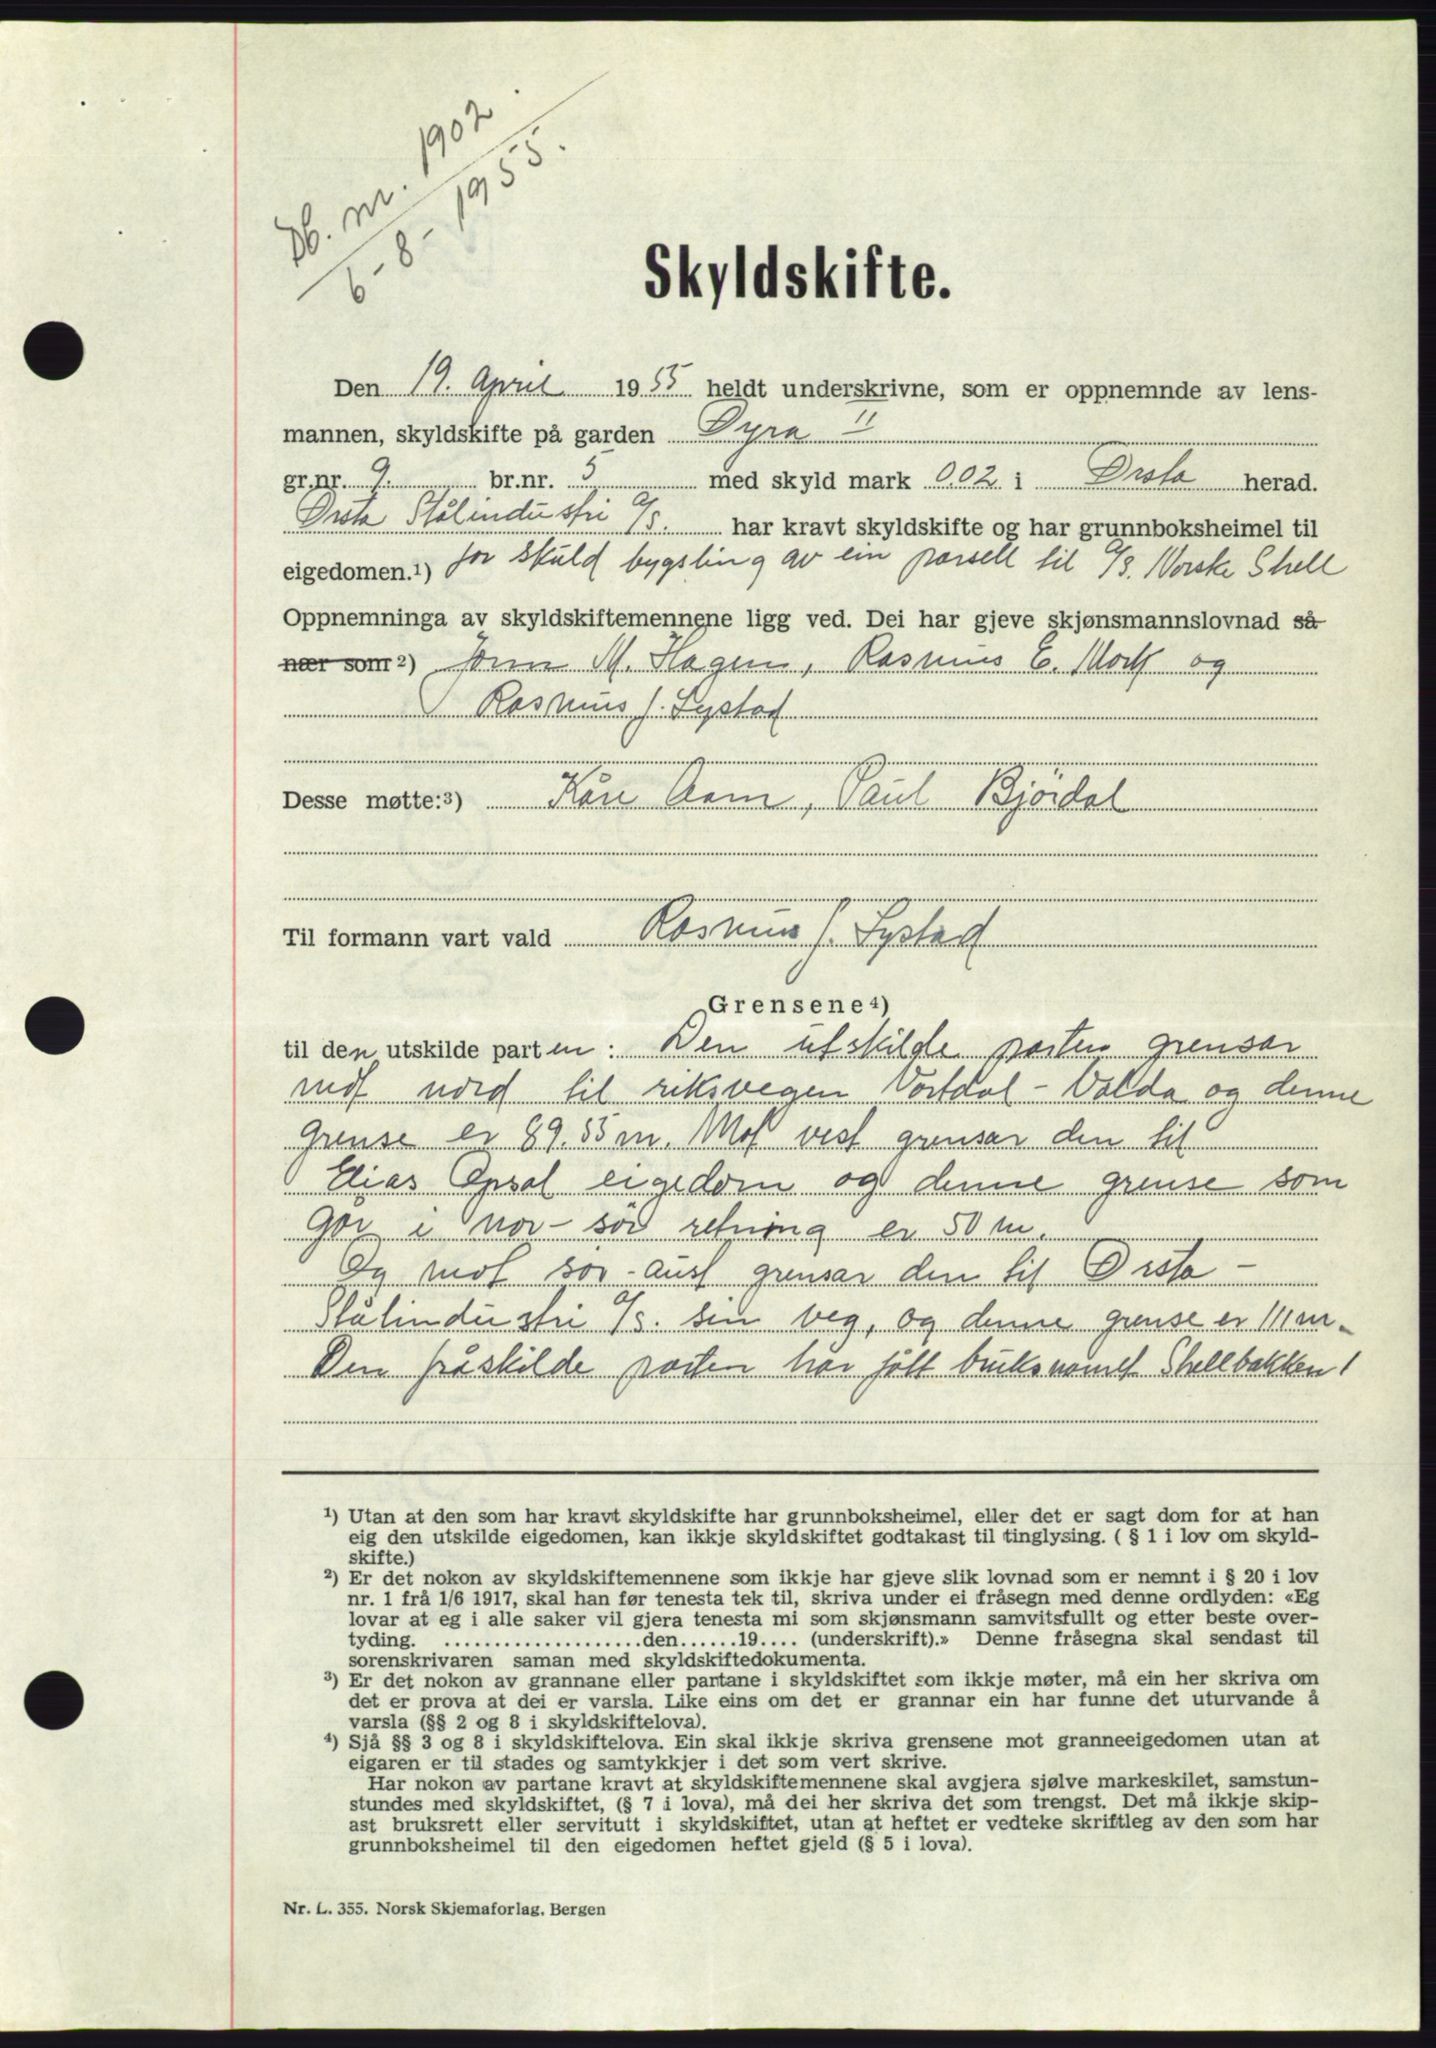 Db. nr. 1902
6-8-1955.
Skyldskifte.
Den 19. April 1955 heldt underskrivne, som er oppnemnde av lens-
mannen, skyldskifte på garden Dyra II
gr.nr. 9. br.nr. 5 med skyld mark 0.02 i Ørsta herad.
Ørsta Stålindustri A/S. har kravt skyldskifte og har grunnboksheimel til
eigedomen.¹) for skuld bygsling av ein parsell til A/S. Norske Shell
Oppnemninga av skyldskiftemennene ligg ved. Dei har gjeve skjønsmannslovnad så
nær som²) M. Hagen, Rasmus E. Mork og
Rasmus J. Systad
Desse møtte:³) Kåre Aam, Paul Bjørdal
Til formann vart vald Rasmus J. Systad
Grensene⁴)
til den utskilde parten: Den utskilde parten grensar
mot nord til riksvegen Vartdal – Volda og denne
grense er 89.55 m. Mot vest grensar den til
Elias Opsal eigedom og denne grense som
går i nor- sør retning er 50 m.
Og mot sør-aust grensar den til Ørsta –
Stålindustri A/S. sin veg, og denne grense er 111 m.
Den fråskilde parten har fått bruksnamet Shellbakken
¹) Utan at den som har kravt skyldskifte har grunnboksheimel, eller det er sagt dom for at han
eig den utskilde eigedomen, kan ikkje skyldskiftet godtakast til tinglysing. ( § 1 i lov om skyld-
skifte.)
²) Er det nokon av skyldskiftemennene som ikkje har gjeve slik lovnad som er nemnt i § 20 i lov
nr. 1 frå 1/6 1917, skal han før tenesta tek til, skriva under ei fråsegn med denne ordlyden: «Eg
lovar at eg i alle saker vil gjera tenesta mi som skjønsmann samvitsfullt og etter beste over-
tyding. ....................den......19.... (underskrift).» Denne fråsegna skal sendast til
sorenskrivaren saman med skyldskiftedokumenta.
³) Er det nokon av grannane eller partane i skyldskiftet som ikkje møter, må ein her skriva om
det er prova at dei er varsla. Like eins om det er grannar ein har funne det uturvande å
varsla (§§ 2 og 8 i skyldskiftelova).
⁴) Sjå §§ 3 og 8 i skyldskiftelova. Ein skal ikkje skriva grensene mot granneeigedomen utan at
eigaren er til stades og samtykkjer i det som vert skrive.
Har nokon av partane kravt at skyldskiftemennene skal avgjera sjølve markeskilet, samstun-
stundes med skyldskiftet, (§ 7 i lova), må dei her skriva det som trengst. Det må ikkje skip-
ast bruksrett eller servitutt i skyldskiftet, utan at heftet er vedteke skriftleg av den som har
grunnboksheimel til den eigedomen heftet gjeld (§ 5 i lova).
Nr. L. 355. Norsk Skjemaforlag, Bergen